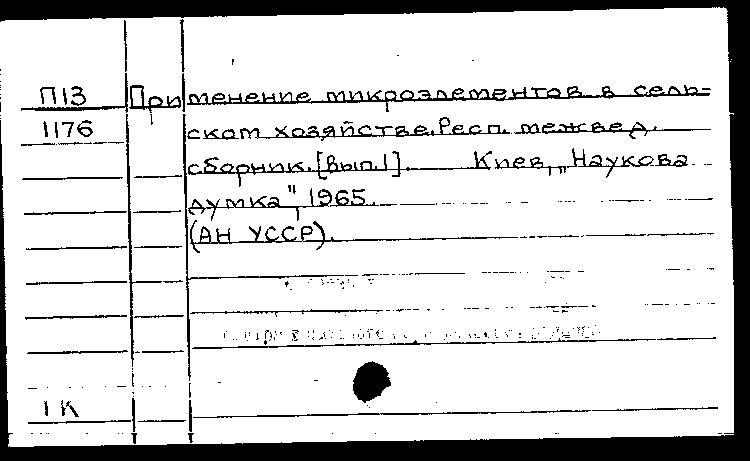 П13 Применение микроэлементов в сель=
1176 ском хозяйстве. Респ. межвед.
сборник. [Вып.1]. Киев, „Наукова
думка", 1965.
(АН УССР).
1 К